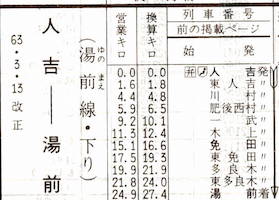 人吉――湯前
63・3・13改正
(湯前線・下り)
ゆのまえ
営業キロ 換算キロ 列車番号
前の掲載ページ
始発
0.0 0.0 弁 人吉発
1.6 1.8 東人吉〃
川村〃
肥後西村〃
9.2 10.1 一武〃
11.3 12.4 木上〃
15.1 16.6 免田〃
17.5 19.3 東免田〃
19.9 21.9 多良木〃
21.8 24.0 東多良木〃
24.9 27.4 湯前着